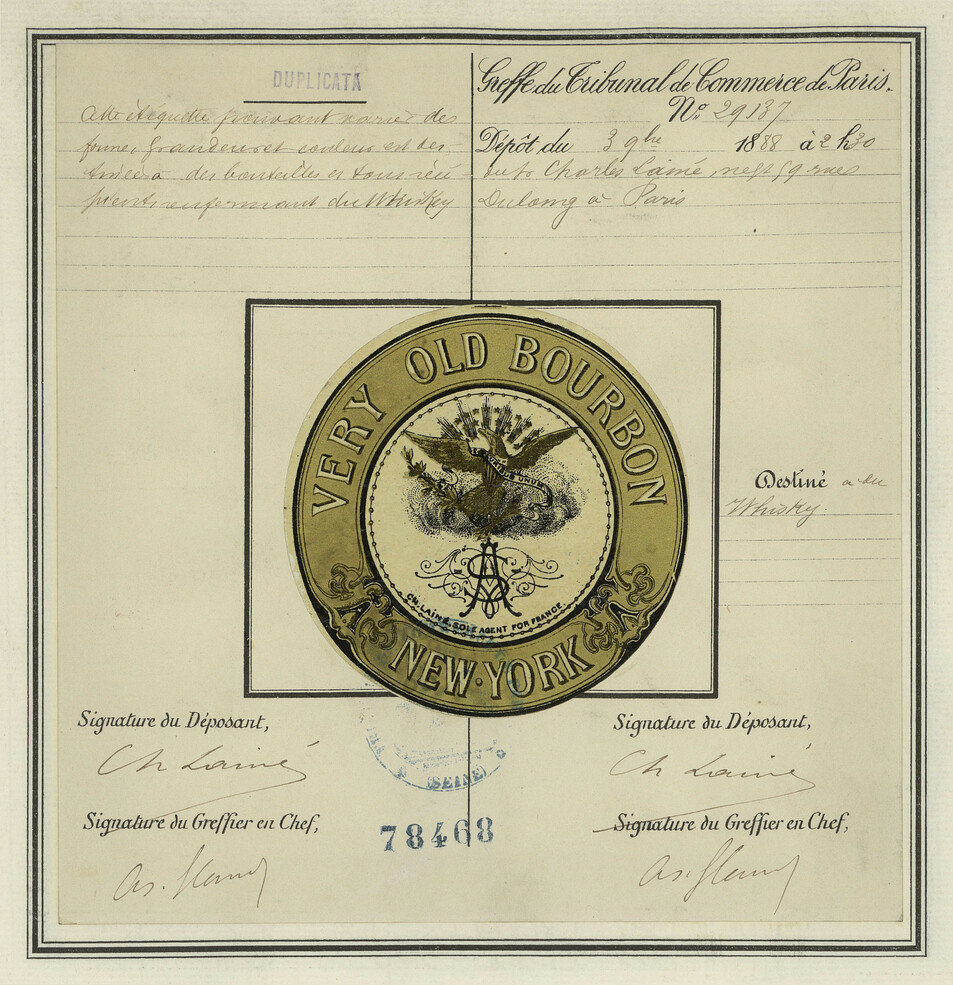 DUPLICATA
Cette étiquette pouvant varier de
forme, grandeur et couleur est des
tinée à des bouteilles et tous réci
pients renfermant du Whisky
Greffe du Tribunal de Commerce de Paris.
No. 29137
Dépôt du 3 9bre 1888 à 2h30
Charles Lainé, negt 59 rue
Dulong à Paris
VERY OLD BOURBON
E PLURIBUS UNUM
AS
CH. LAINÉ, SOLE AGENT FOR FRANCE.
A A
NEW-YORK
Destiné à du
Whisky.
(SEINE)
Signature du Déposant,
Ch Lainé
Signature du Greffier en Chef,
78468
Signature du Déposant,
Ch Lainé
Signature du Greffier en Chef,